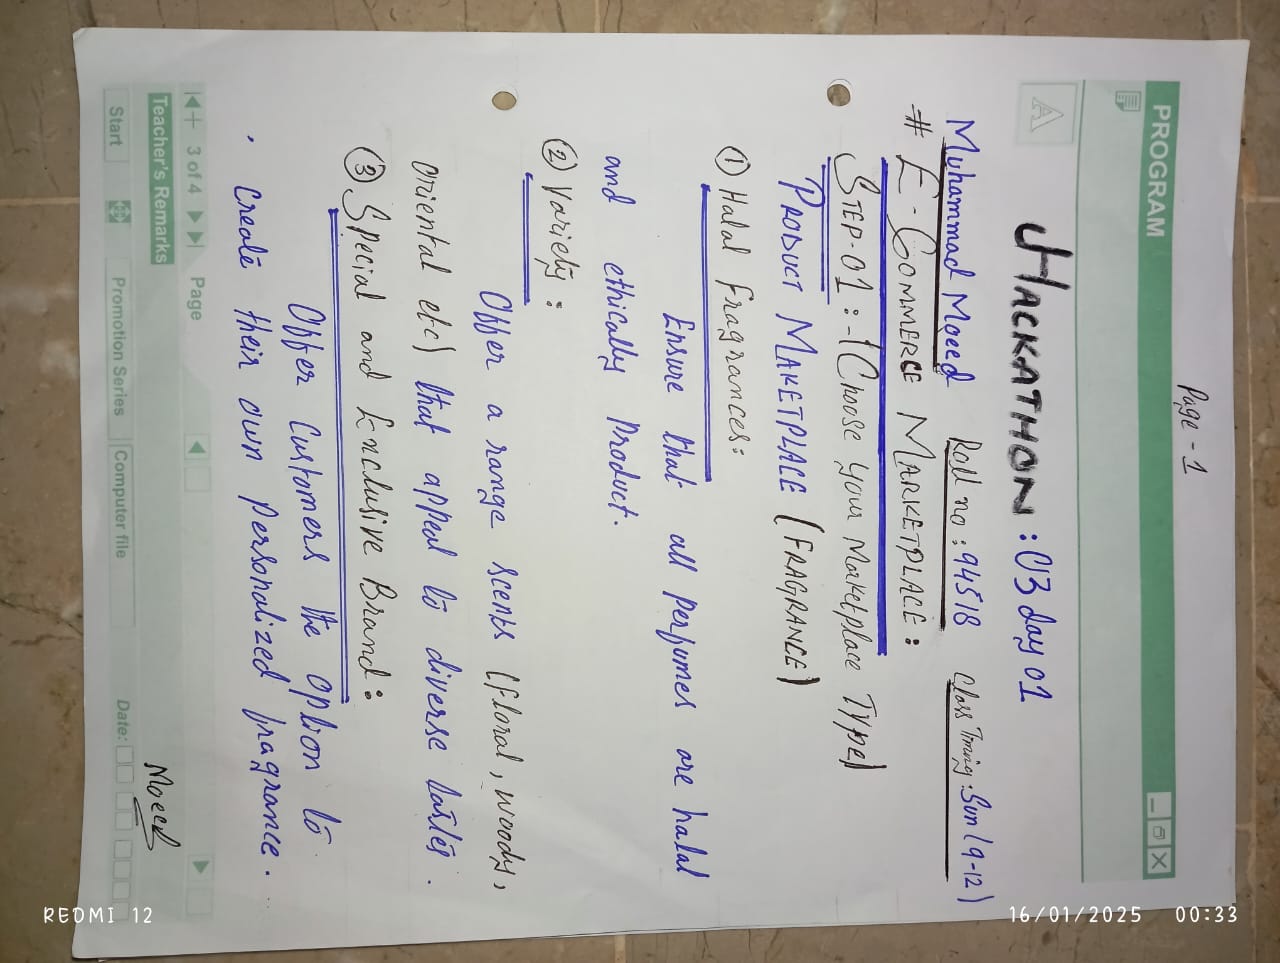 Page - 1
PROGRAM
A
HACKATHON : 03 day 01
Muhammad Moeed Roll no : 94518 Class Timing : Sun (9-12)
# E-COMMERCE MARKETPLACE :
STEP-01 :- (Choose your Marketplace Type)
PRODUCT MAKETPLACE (FRAGRANCE)
① Halal fragrances :
Ensure that all perfumes are halal
and ethically Product.
② Variety :
Offer a range scents (floral, woody,
oriental etc) that appeal to diverse tastes.
③ Special and Enclusive Brand :
Offer Customers the option to
. Create their own personalized fragrance.
3 of 4 Page
Teacher's Remarks
Moeed
Start Promotion Series Computer file Date:
REDMI 12
16/01/2025 00:33